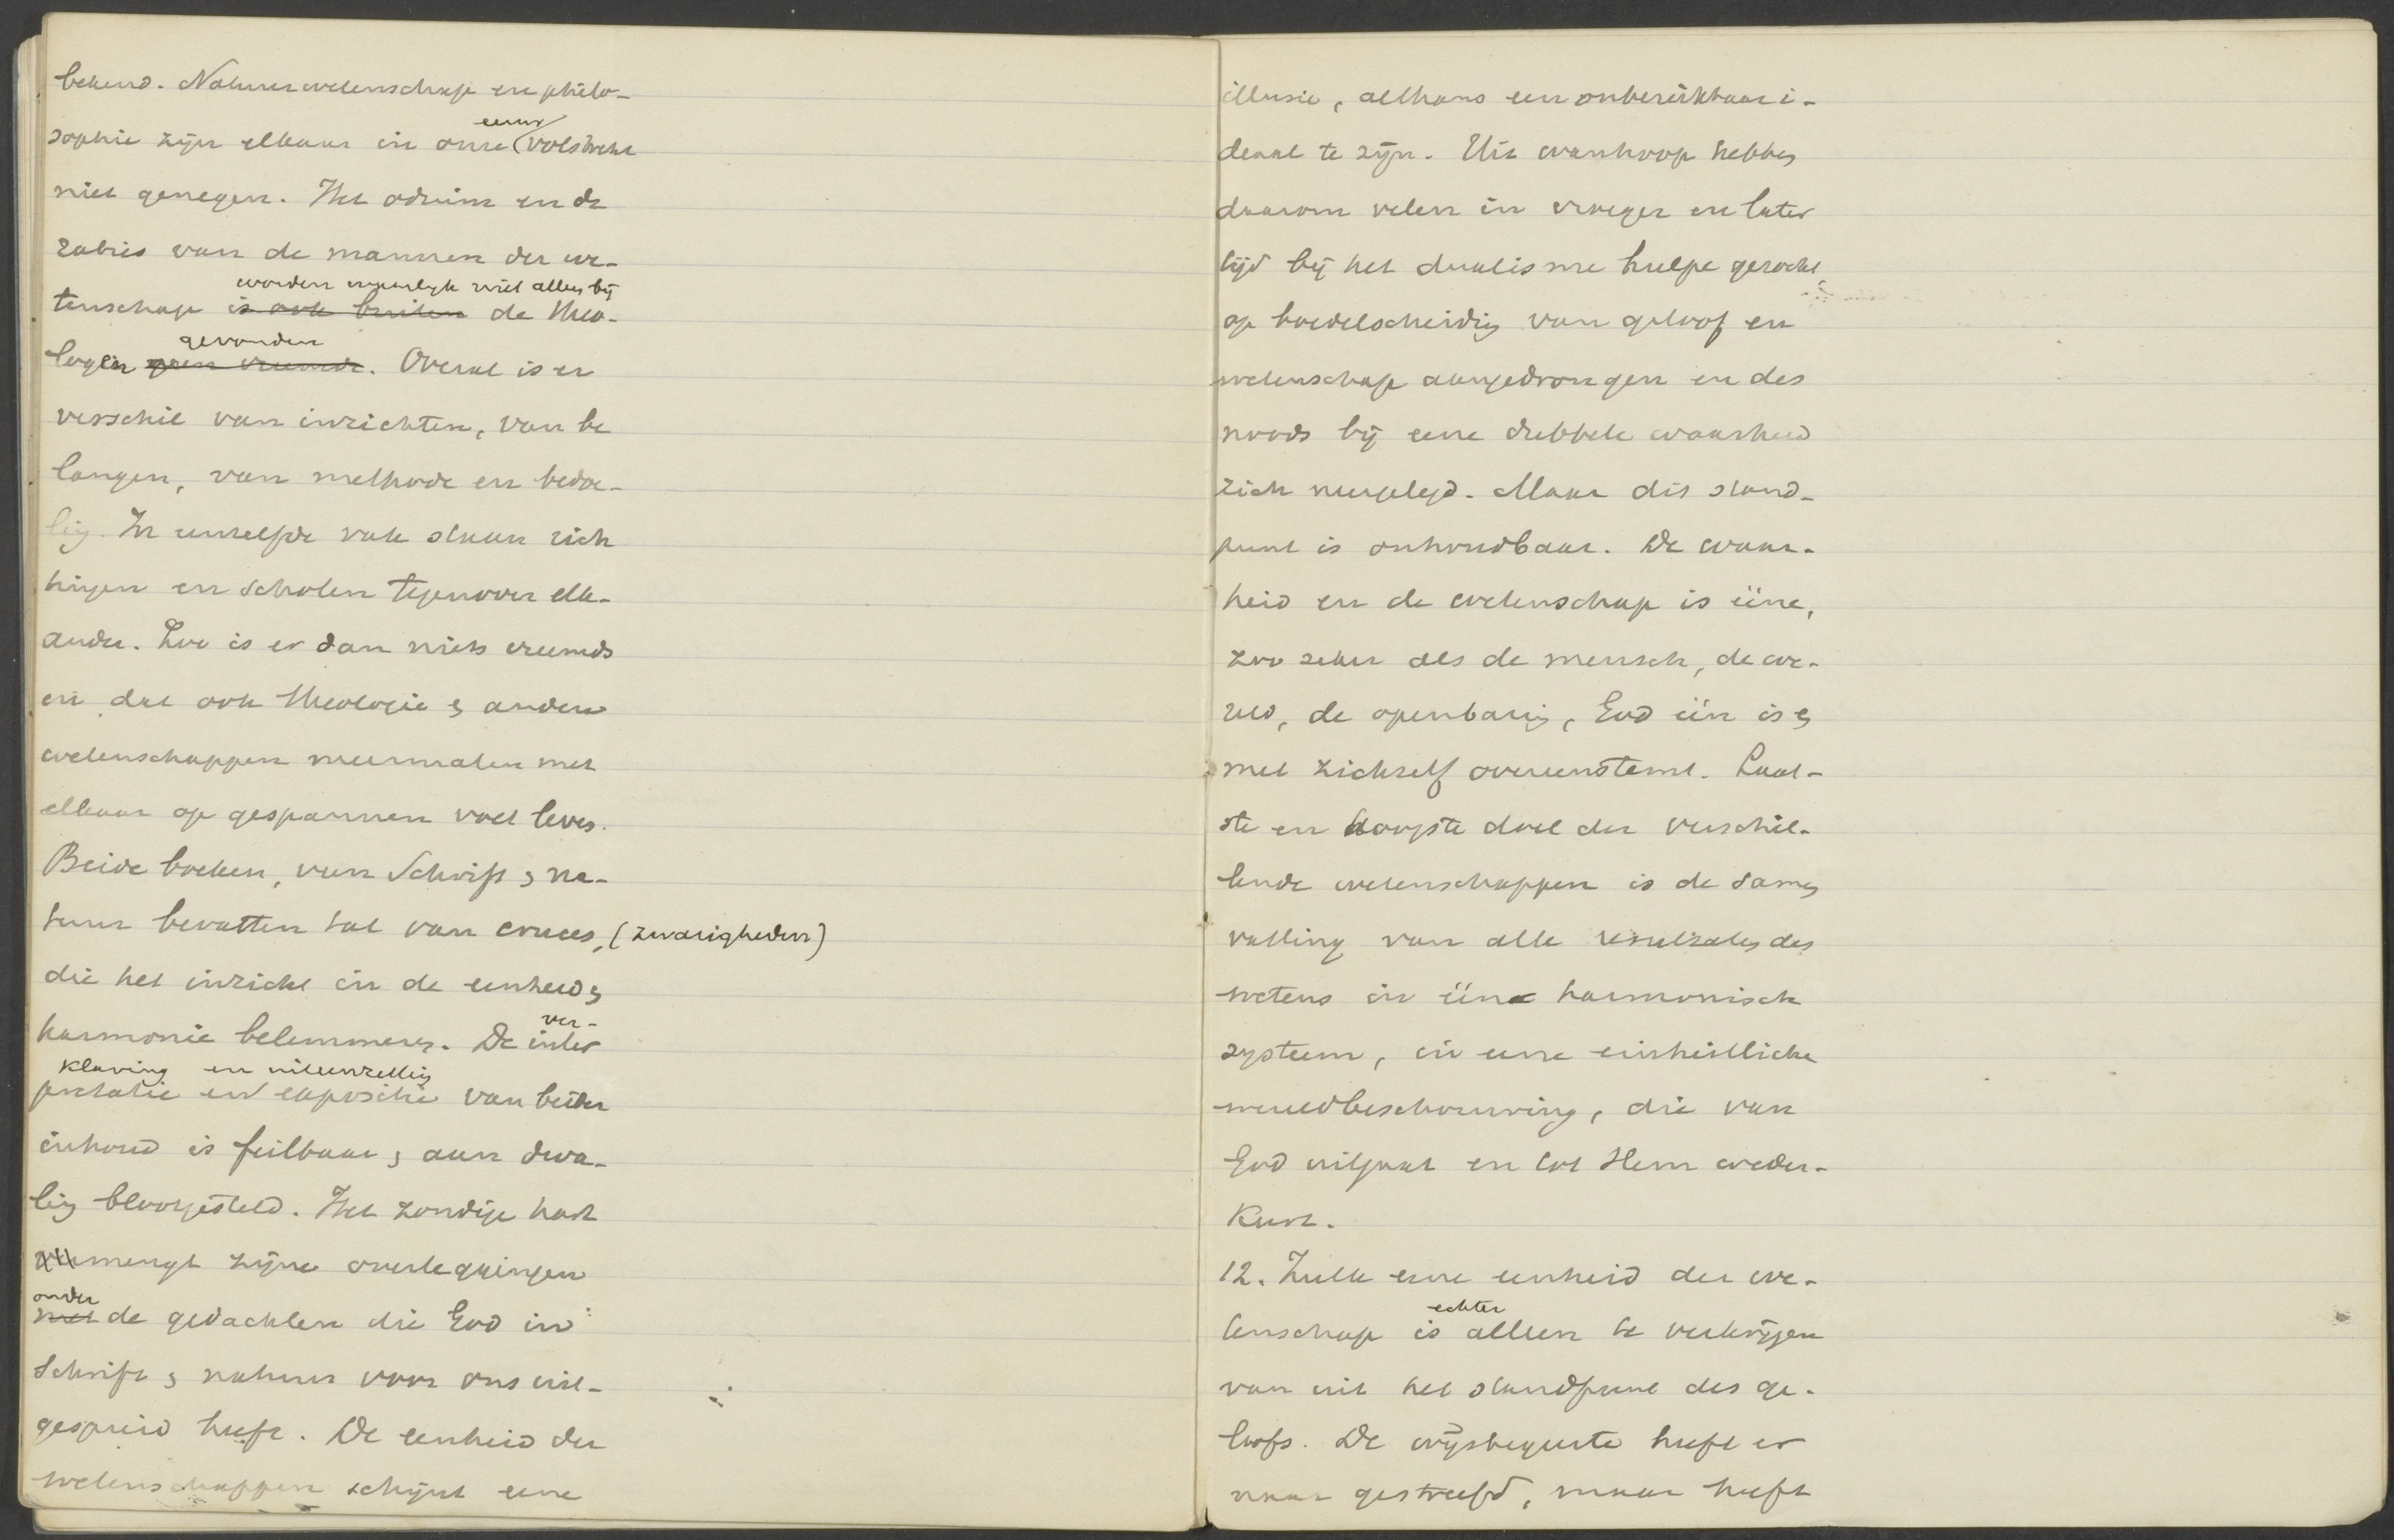 bekend. Natuurwetenschap en philo-
sophie zijn elkaar in onze eeuw volstrekt
niet genegen. Het odium en de
rabies van de mannen der we-
tenschap is ook buiten worden waarlijk niet alleen bij de theo-
logen geen vreemde gevonden. Overal is er
verschil van inzichten, van be
langen, van methode en bedoe-
ling. In eenzelfde vak staan rich
tingen en scholen tegenover elk-
ander. Zoo is er dan niets vreemds
in dat ook theologie & andere
wetenschappen meermalen met
elkaar op gespannen voet leven.
Beide boeken, van Schrift & na-
tuur bevatten tal van cruces, (zwarigheden)
die het inzicht in de eenheid &
harmonie belemmeren. De inter ver-
pretatie en expositie klaring en uiteenzetting van beider
inhoud is feilbaar & aan dwa-
ling blootgesteld. Het zondige hart
mengt zijne overleggingen
met onder de gedachten die God in
Schrift & natuur voor ons uit-
gespreid heeft. De eenheid der
wetenschappen schijnt eene
illusie, althans een onbereikbaar i-
deaal te zijn. Uit wanhoop hebben
daarom velen in vroeger en later
tijd bij het dualisme hulpe gezocht,
op boedelscheiding van geloof en
wetenschap aangedrongen en des
noods bij eene dubbele waarheid
zich neergelegd. Maar dit stand-
punt is onhoudbaar. De waar-
heid en de wetenschap is ééne,
zoo zeker als de mensch, de we-
reld, de openbaring, God één is &
met zichzelf overeenstemt. Laat-
ste en hoogste doel der verschil-
lende wetenschappen is de samen
vatting van alle resultaten des
wetens in één harmonisch
systeem, in eene einheitliche
wereldbeschouwing, die van
God uitgaat en tot Hem weder-
keert.
12. Zulk eene eenheid der we-
tenschap is echter alleen te verkrijgen
van uit het standpunt des ge-
loofs. De wijsbegeerte heeft er
naar gestreefd, maar heeft